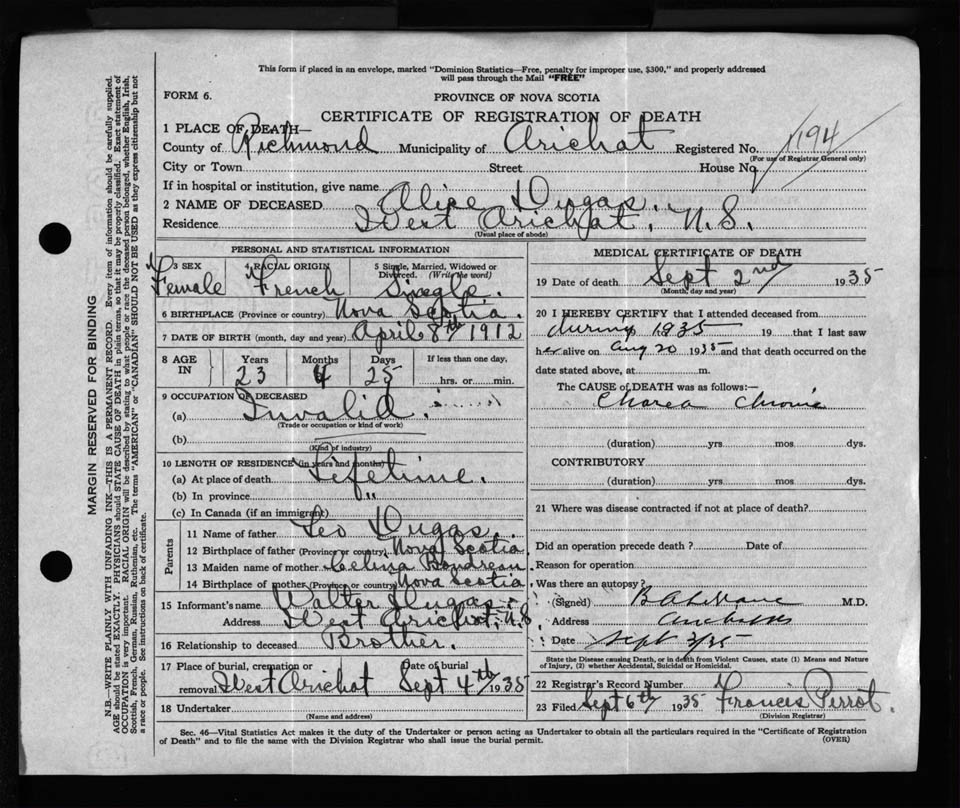 This form if placed in an envelope, marked "Dominion Statistics—Free, penalty for improper use, $300," and properly addressed
will pass through the Mail "FREE"
FORM 6.
PROVINCE OF NOVA SCOTIA
CERTIFICATE OF REGISTRATION OF DEATH
1 PLACE OF DEATH—
County of Richmond Municipality of Arichat Registered No. 1194
(For use of Registrar General only)
City or Town Street House No.
If in hospital or institution, give name
2 NAME OF DECEASED Alice Dugas.
Residence West Arichat, N.S.
(Usual place of abode)
PERSONAL AND STATISTICAL INFORMATION
3 SEX 4 RACIAL ORIGIN 5 Single, Married, Widowed or
Divorced. (Write the word)
Female French Single.
6 BIRTHPLACE (Province or country) Nova Scotia.
7 DATE OF BIRTH (month, day and year) April 8th 1912
8 AGE IN Years Months Days If less than one day,
23 4 25 hrs. or min.
9 OCCUPATION OF DECEASED
(a) Invalid.
(Trade or occupation or kind of work)
(b)
(Kind of industry)
10 LENGTH OF RESIDENCE (in years and months)
(a) At place of death Lifetime.
(b) In province "
(c) In Canada (if an immigrant)
Parents
11 Name of father Leo Dugas.
12 Birthplace of father (Province or country) Nova Scotia.
13 Maiden name of mother Celina Boudreau
14 Birthplace of mother (Province or country) Nova Scotia
15 Informant's name Walter Dugas.
Address West Arichat, N.S.
16 Relationship to deceased Brother.
17 Place of burial, cremation or Date of burial
removal West Arichat Sept 4th 1935
18 Undertaker
(Name and address)
MEDICAL CERTIFICATE OF DEATH
19 Date of death Sept 2nd 1935
(Month, day and year)
20 I HEREBY CERTIFY that I attended deceased from
during 1935 19 that I last saw
her alive on Aug 20 1935 and that death occurred on the
date stated above, at m.
The CAUSE OF DEATH was as follows:—
Chorea Chronic
(duration) yrs. mos. dys.
CONTRIBUTORY
(duration) yrs. mos. dys.
21 Where was disease contracted if not at place of death?
Did an operation precede death? Date of
Reason for operation
Was there an autopsy?
(Signed) M.D.
Address Arichat NS
Date Sept 3/35
State the Disease causing Death, or in death from Violent Causes, state (1) Means and Nature
of Injury, (2) whether Accidental, Suicidal or Homicidal.
22 Registrar's Record Number
23 Filed Sept 6th 1935 Francis Perrot.
(Division Registrar)
Sec. 46—Vital Statistics Act makes it the duty of the Undertaker or person acting as Undertaker to obtain all the particulars required in the "Certificate of Registration
of Death" and to file the same with the Division Registrar who shall issue the burial permit.
(OVER)
MARGIN RESERVED FOR BINDING
N.B.—WRITE PLAINLY WITH UNFADING INK—THIS IS A PERMANENT RECORD. Every item of information should be carefully supplied.
AGE should be stated EXACTLY. PHYSICIANS should STATE CAUSE OF DEATH in plain terms, so that it may be properly classified. Exact statement of
OCCUPATION is very important. RACIAL ORIGIN will be described by stating to what people or race the deceased person belonged, whether English, Irish,
Scottish, French, German, Russian, Ruthenian, etc. The terms "AMERICAN" or "CANADIAN" SHOULD NOT BE USED as they express citizenship but not
a race or people. See instructions on back of certificate.